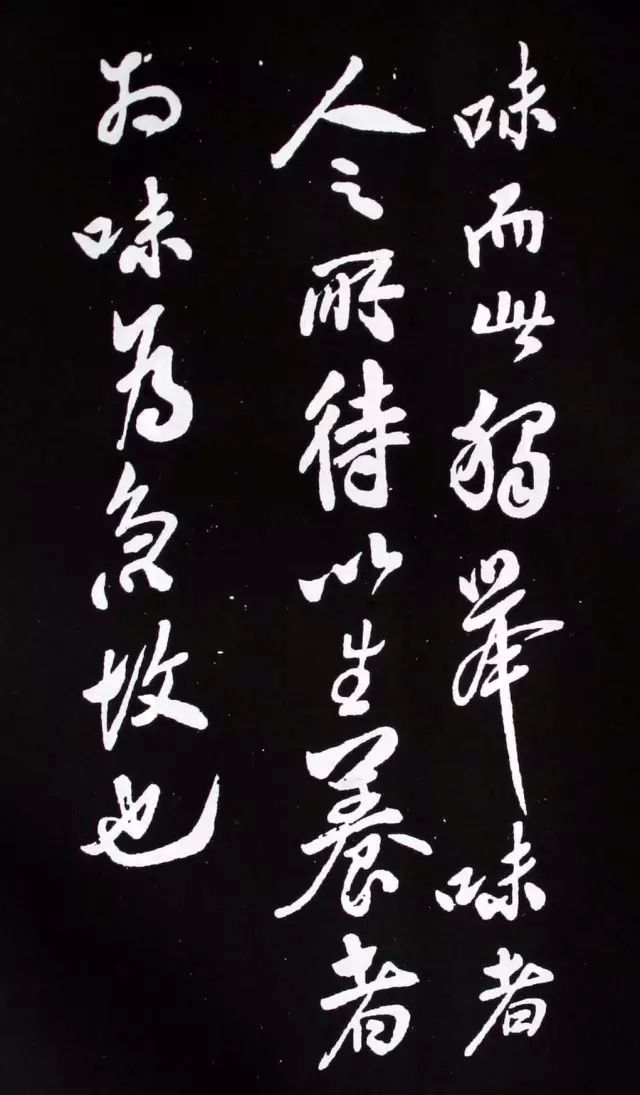 味而此獨舉味者
人之所待以生養者
於味為急故也